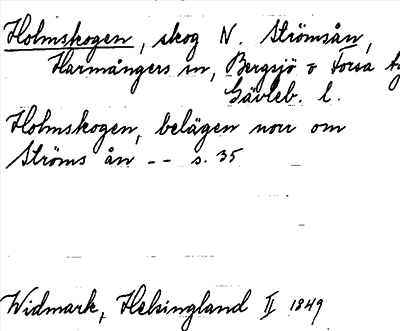 Holmskogen, skog N. Strömsån,
Harmångers sn, Bergsjö o Forsa
Gävleb. l.
Holmskogen, belägen norr om
Ströms ån -- s. 35
Widmark, Helsingland II 1849